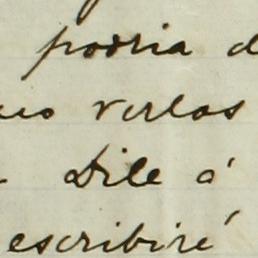 podria d
uo verlos
Dile á
escribiré